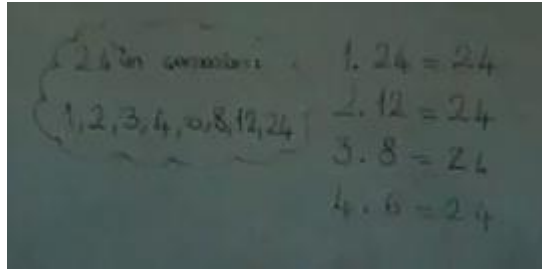 24'ün çarpanları:
1, 2, 3, 4, 6, 8, 12, 24
1. 24 = 24
2. 12 = 24
3. 8 = 24
4. 6 = 24